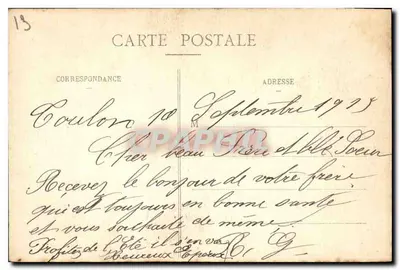 19
CARTE POSTALE
CORRESPONDANCE
ADRESSE
Toulon 18 Septembre 1915
Cher beau Frère et Blle Soeur
Recevez le bonjour de votre frère
qui est toujours en bonne santé
et vous souhaite de même
Profitez de l'Eté il s'en va
Heureux Epoux C. G